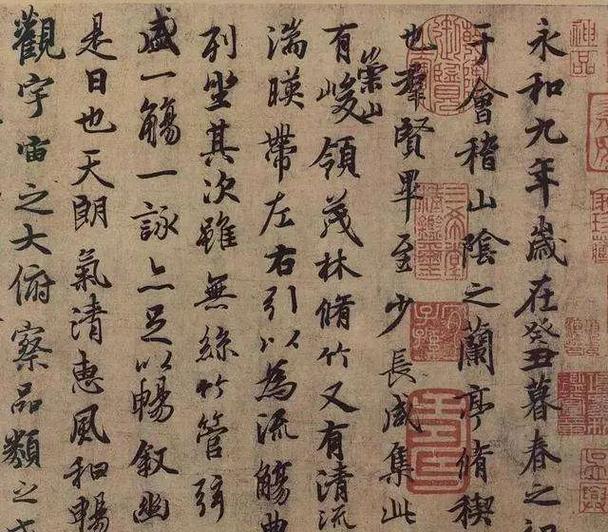 永和九年歲在癸丑暮春之
于會稽山陰之蘭亭脩稧
也羣賢畢至少長咸集此
有崇山峻領茂林脩竹又有清流
湍暎帶左右引以為流觴曲
列坐其次雖無絲竹管弦
盛一觴一詠亦足以暢叙幽
是日也天朗氣清惠風和暢
觀宇宙之大俯察品類之
神品